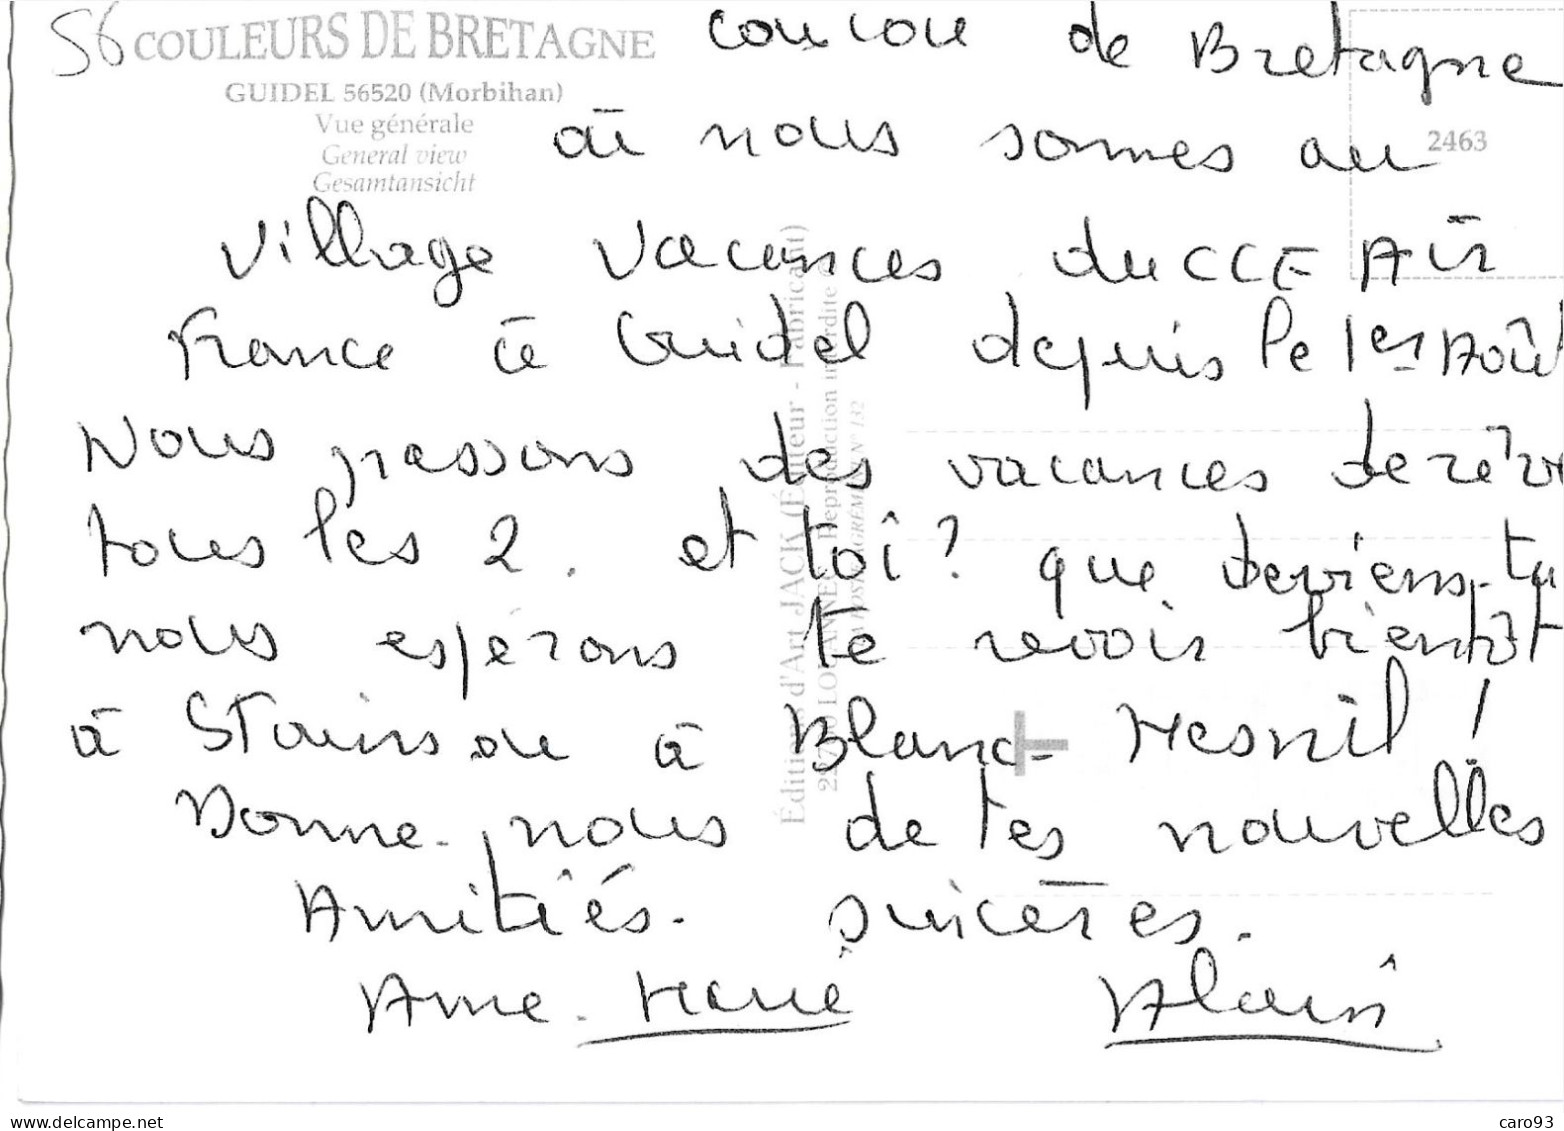 56
COULEURS DE BRETAGNE
GUIDEL 56520 (Morbihan)
Vue générale
General view
Gesamtansicht
2463
coucou de Bretagne
où nous sommes au
Village Vacances du CCE Air
France à Guidel depuis le 1er Août
Nous passons des vacances de rêve
tous les 2. et toi ? que deviens-tu
nous espérons te revoir bientôt
à Stains ou à Blanc-Mesnil !
Donne-nous de tes nouvelles
Amitiés. sincères.
Anne-Marie Alain
Éditions d'Art JACK (Éditeur - Fabricant)
LOUANNEC Reproduction interdite
AGRÉMENT N° 132
delcampe.net
caro93